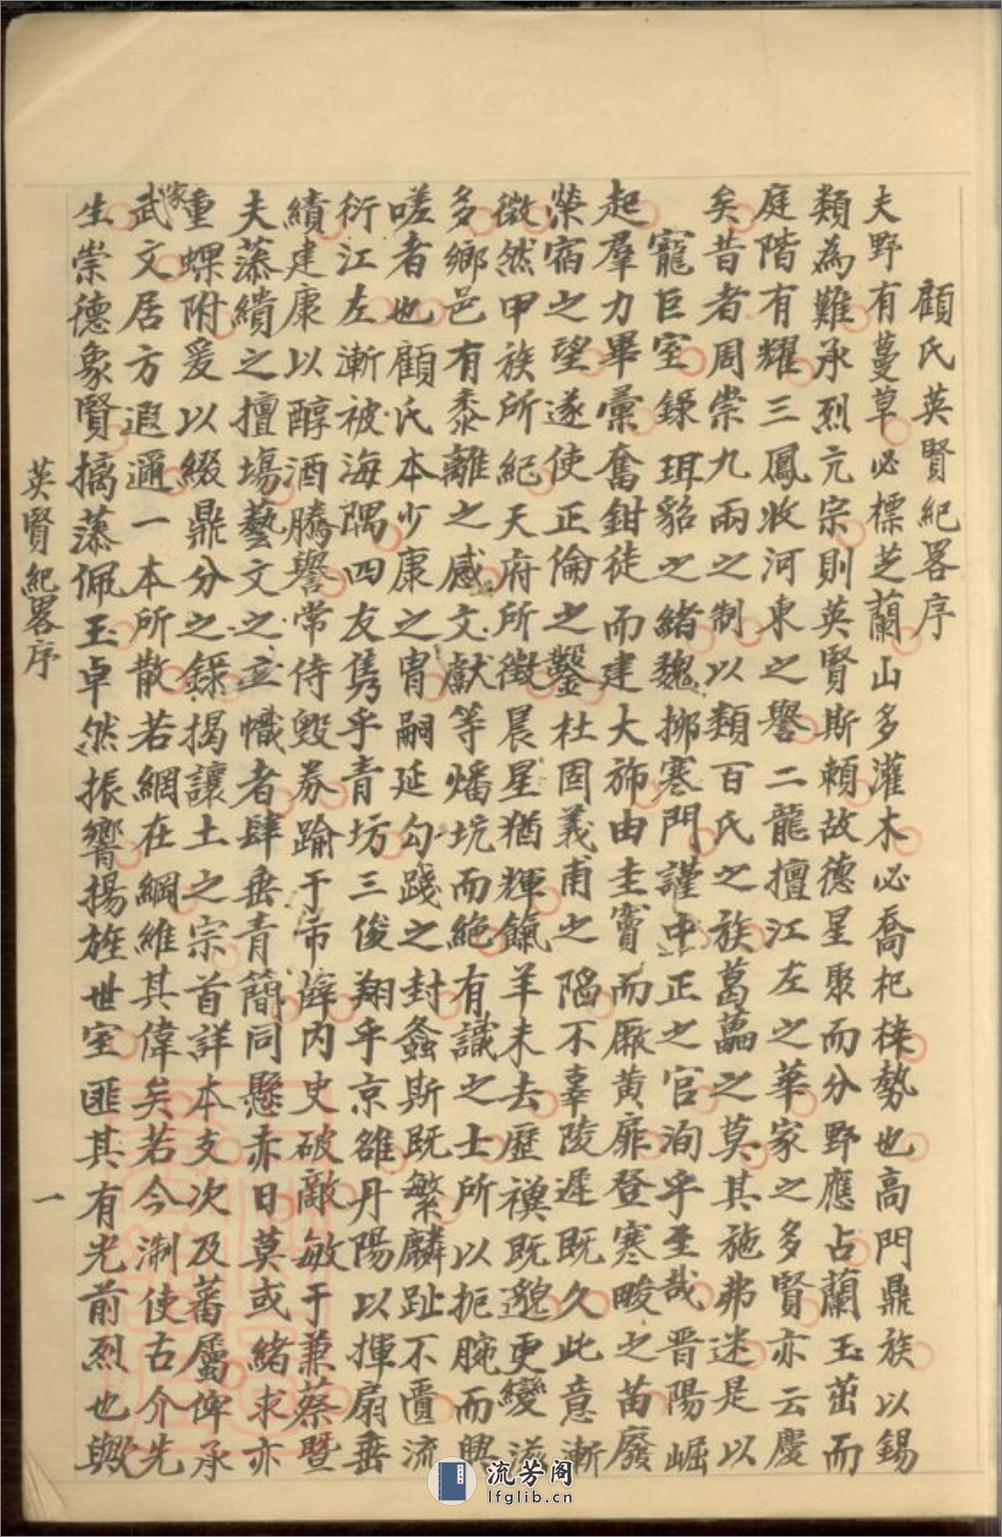 顧氏英賢紀畧序
夫野有蔓草必標芝蘭山多灌木必喬杞梓勢也高門鼎族以錫
類為難承烈亢宗則英賢斯賴故德星聚而分野應占蘭玉茁而
庭階有耀三鳳收河東之譽二龍擅江左之華家之多賢亦云慶
矣昔者周崇九兩之制以類百氏之族葛藟之莫其施弗迷是以
寵巨室錄珥貂之緒魏挪寒門謹中正之官洵乎至哉晋陽崛
起羣力畢彙奮鉗徒而建大斾由圭竇而厰黄扉登寒畯之苗廢
榮宿之望遂使正倫之鑿杜固義甫之陷不辜陵遲既久此意漸
微然甲族所紀天府所徵晨星猶輝餼羊未去歷禩既邈更變滋
多鄉邑有黍離之感文獻等燔坑而絶有識之士所以扼腕而興
嗟者也顧氏本少康之胄嗣延勾踐之封螽斯既繁麟趾不匱流
衍江左漸被海隅四友雋乎青坊三俊翔乎京雒丹陽以揮扇垂
績建康以醇酒騰譽常侍毀券踰于帝辭内史破敵敏于兼蔡暨
夫藻繢之擅塲藝文之立幟者肆垂青簡同懸赤日莫或緒求亦
重螺附爰以綴鼎分之錄揭讓土之宗首詳本支次及蕃屬俾承
家
武文居方遐邇一本所散若網在綱維其偉矣若今淛使古介先
生崇德象賢摛藻佩玉卓然振響揚旌世室匪其有光前烈也歟
英賢紀畧序
一
流芳阁
lfglib.cn